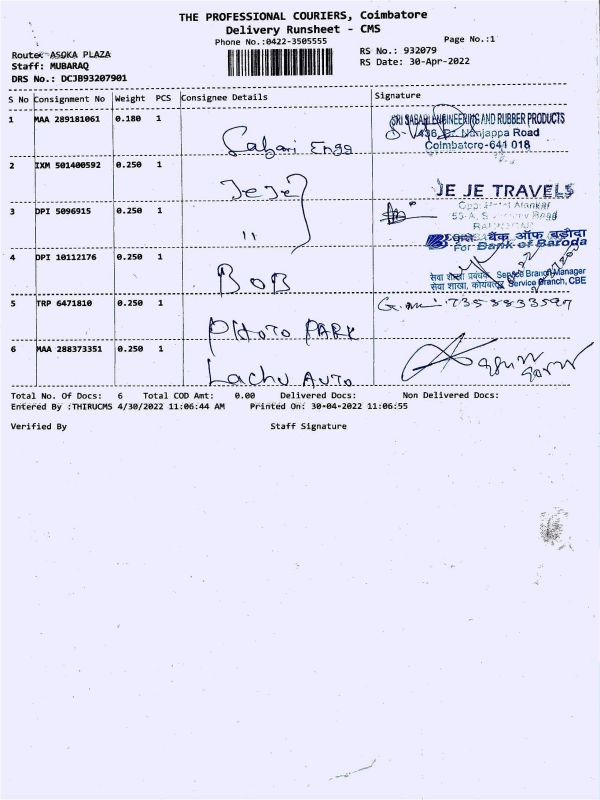 THE PROFESSIONAL COURIERS, Coimbatore
Delivery Runsheet - CMS
Phone No.:0422-3505555
Page No.:1
Route: ASOKA PLAZA
RS No.: 932079
Staff: MUBARAQ
RS Date: 30-Apr-2022
DRS No.: DCJB93207901
S No Consignment No Weight PCS Consignee Details Signature
1 MAA 289181061 0.180 1 Sabari Engg
SRI SABARI ENGINEERING AND RUBBER PRODUCTS
436, Nanjappa Road
Coimbatore-641 018
2 IXM 501400592 0.250 1 JeJe
JE JE TRAVELS
3 DPI 5096915 0.250 1 "
कृते बैंक ऑफ बड़ौदा
For Bank of Baroda
4 DPI 10112176 0.250 1 BOB
सेवा शाखा प्रबंधक Service Branch Manager
सेवा शाखा, कोयंबतूर Service Branch, CBE
5 TRP 6471810 0.250 1 PHOTO PARK
6 MAA 288373351 0.250 1 Lachu AUTO
Total No. Of Docs: 6 Total COD Amt: 0.00 Delivered Docs: Non Delivered Docs:
Entered By :THIRUCMS 4/30/2022 11:06:44 AM Printed On: 30-04-2022 11:06:55
Verified By Staff Signature